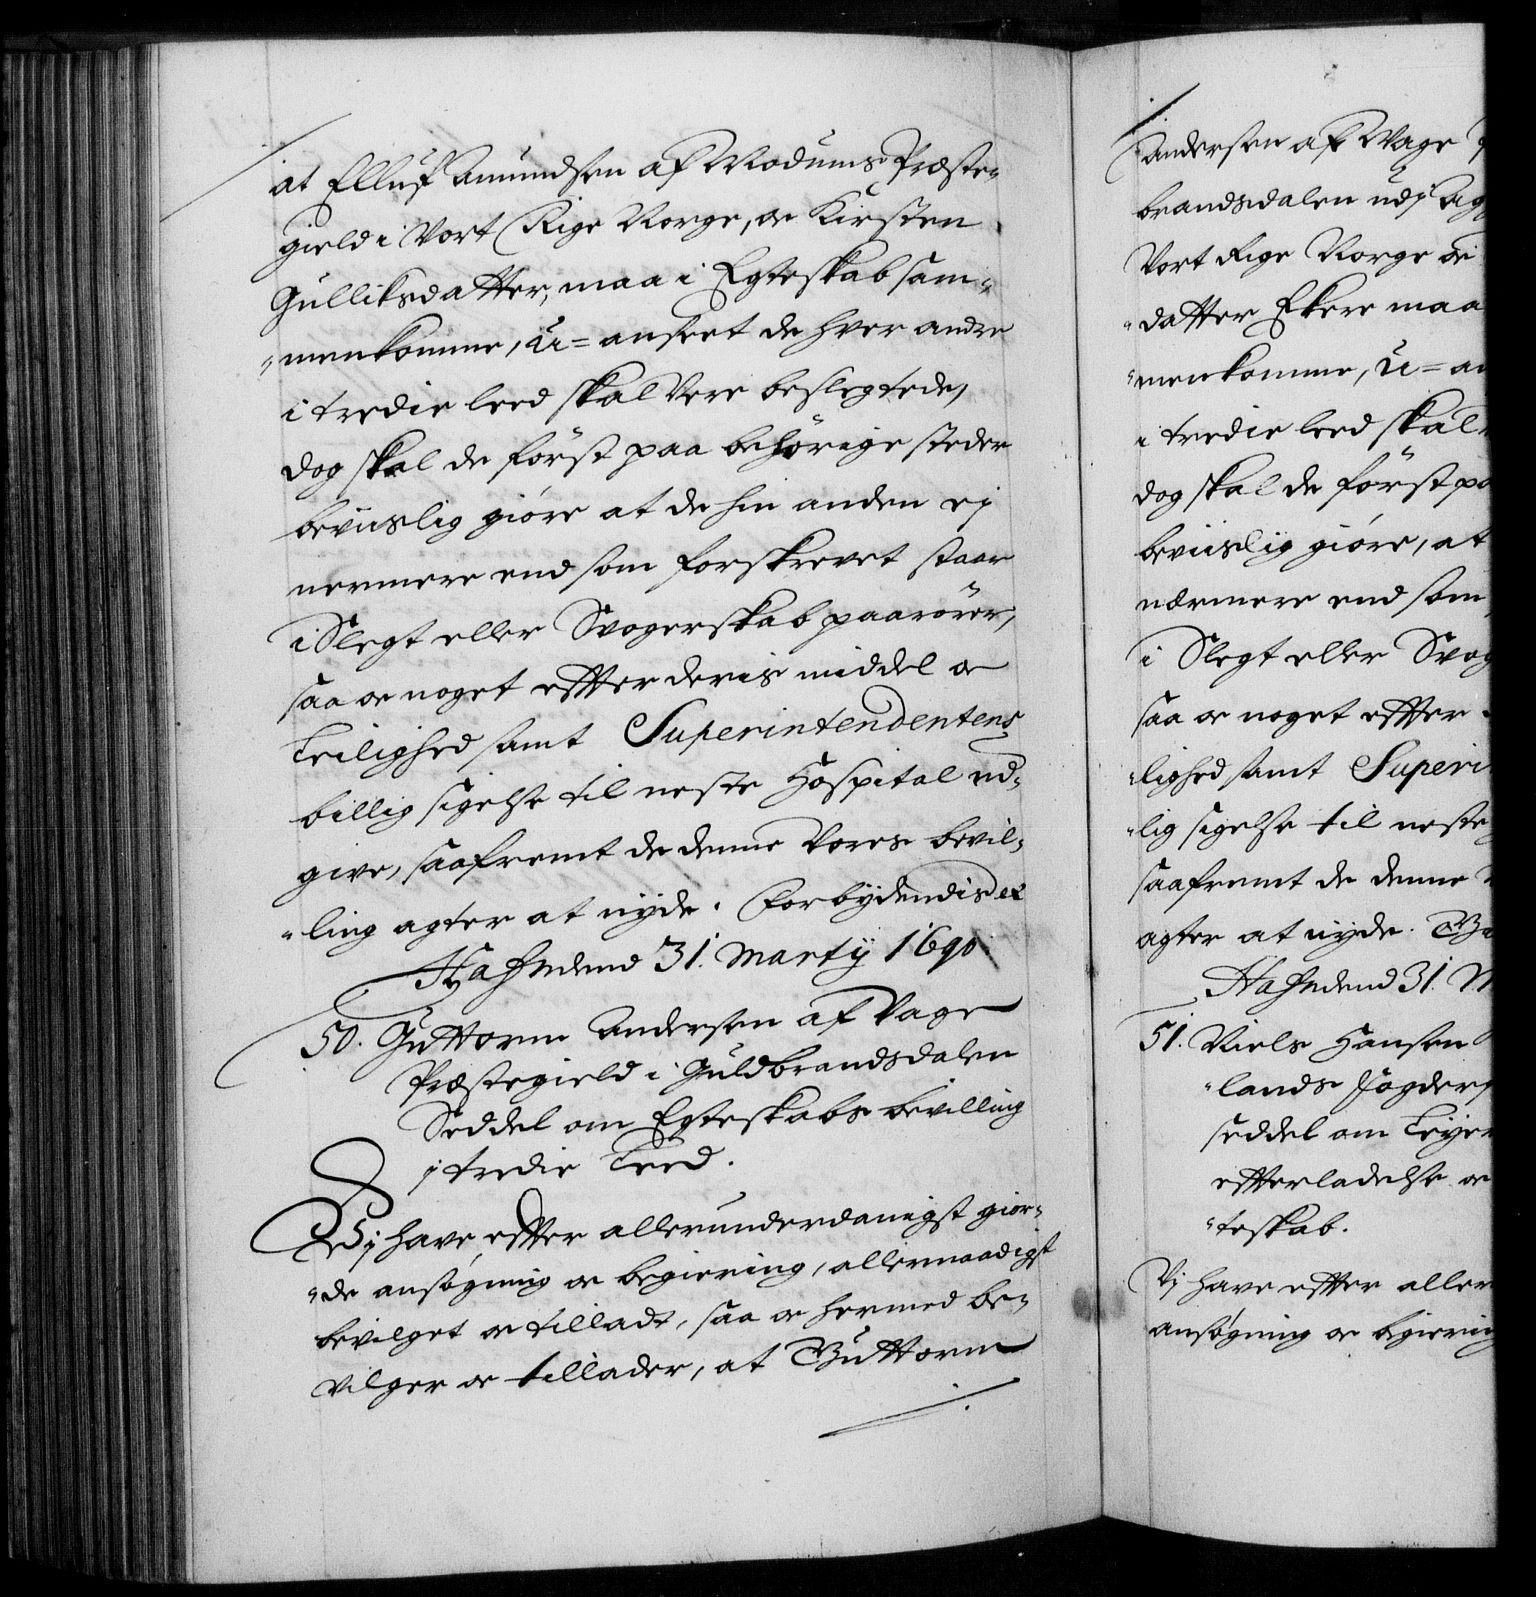 at Elluf Amundsen af Modums Præste-
gield i Vort Rige Norge, oc Kirsten
Gulliksdatter, maa i Egteskab sam-
"menkomme, u=anseet de hver andre
i tredie leed skal Vere beslegtede,
dog skal de först paa behörige steder
beviislig giöre at de hin anden ej
nermere end som forskrevet staar
i Slegt eller Svogerskab paarörer,
saa oc noget effter deris middel oc
Leilighed samt Superintendentens
billig sigelse til neste Hospital ud-
give, saafremt de denne Vores bevil-
"ling agter at nyde. Forbydendis etc
Hafn den 31. Martij 1690.
50. Guttorm Andersen af Vage
Præstegield i Guldbrandsdalen
Seddel om Egteskabs bevilling
i tredie Leed.
Vj have effter allerunderdanigst gior-
"de ansøgning oc begiering, allernaadigst
bevilget oc tilladt, saa oc hermed be-
vilger oc tillader, at Guttorm
Andersen af Vage
brandsdalen udj
Vort Rige Norge oc
"datter Ekere maa
"menkomme, u=an
i tredie leed skal
dog skal de först pa
beviislig giöre, at
nærmere end som
i Slegt eller Svog
saa oc noget effter
"lighed samt Superi
"lig sigelse til neste
saafremt de denne
agter at nyde.
Hafn den 31. M
51. Niels Hansen
"lands Fogderj
seddel om Leyer
effterladelse oc
"teskab.
Vj have effter aller
ansøgning oc begiering